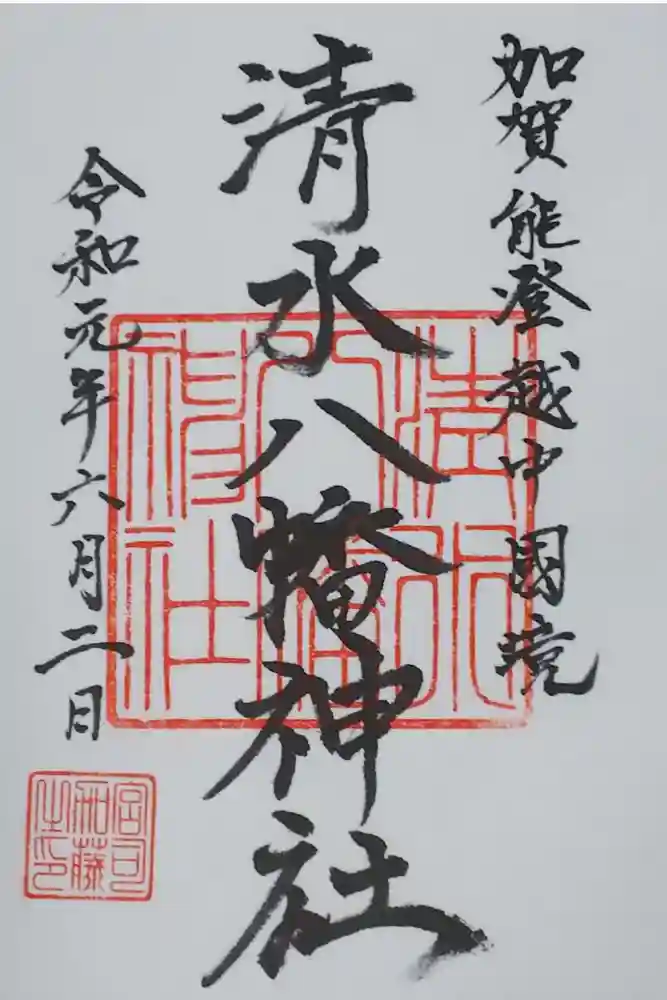 加賀能登越中國境
清水八幡神社
令和元年六月二日
清水八幡神社
宮司加藤之印